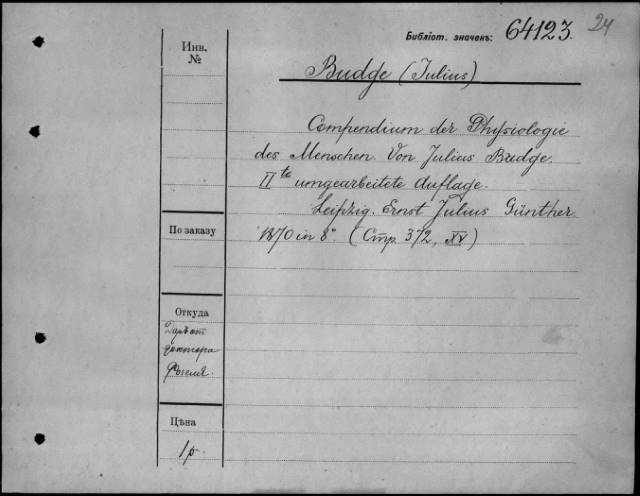 Библіот. значекъ: 64123. 24
Инв. №
Budge (Julius)
Compendium der Physiologie
des Menschen. Von Julius Budge.
IIte umgearbeitete Auflage.
Leipzig. Ernst Julius Günther.
1870 in 8° (Стр. 372, XV)
По заказу
Откуда
Даръ от
доктора
Цѣна
1 р.